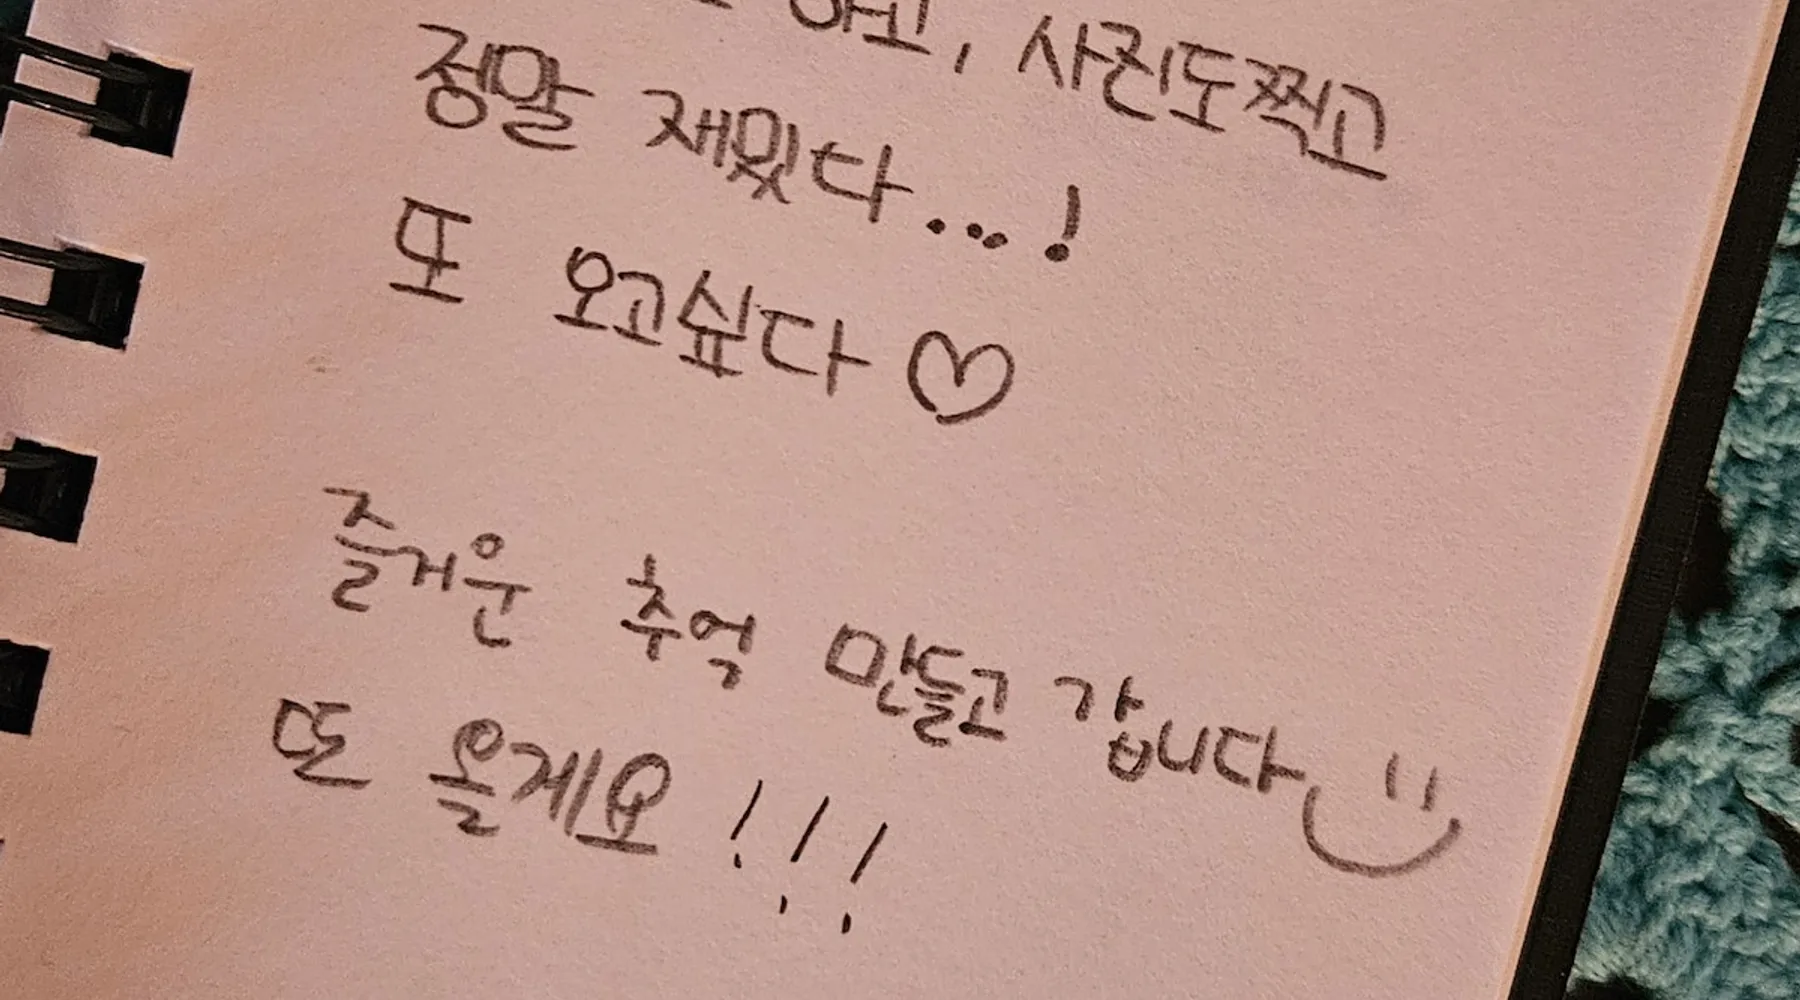 하고, 사진도찍고
정말 재밌다...!
또 오고싶다♡
즐거운 추억 만들고 갑니다
또 올게요!!!